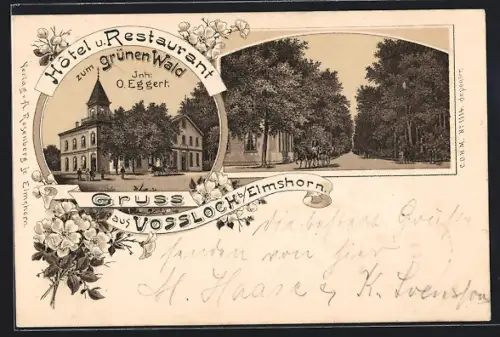 Hôtel u. Restaurant
zum grünen Wald
Inh:
O. Eggert.
Gruss
aus Vossloch b/Elmshorn.
Verlag v. A. Rosenberg jr. Elmshorn.
die besten Grüße
senden von hier
M. Haase & K. Svensson